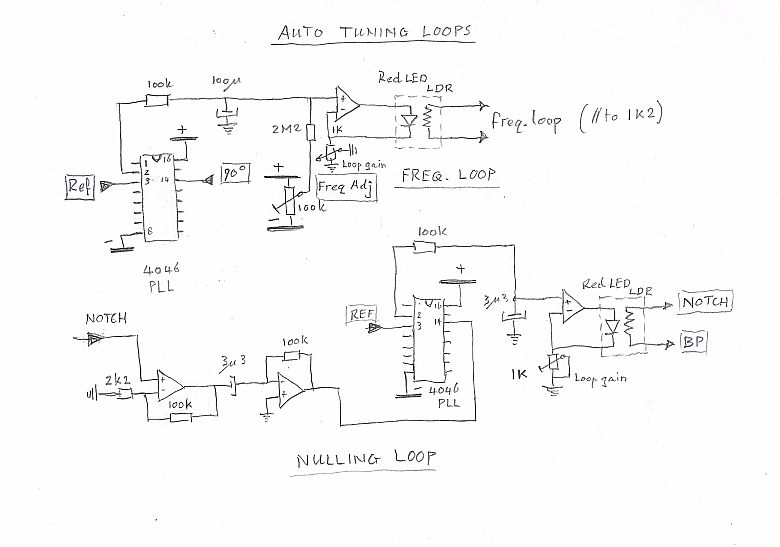 AUTO TUNING LOOPS
100k
100µ
Red LED
LDR
freq. loop (// to 1K2)
2M2
1K
Loop gain
Freq Adj
FREQ. LOOP
+
1
16
2
3
14
8
Ref
90°
+
100k
-
-
4046
PLL
100k
+
3µ3
Red LED
LDR
NOTCH
BP
REF
16
2
14
3
1K
Loop gain
-
4046
PLL
NOTCH
2k2
100k
3µ3
100k
NULLING LOOP